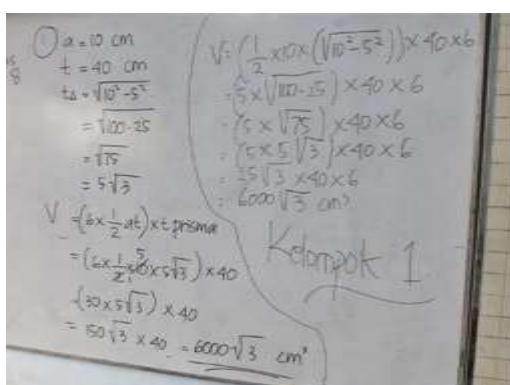 ① a = 10 cm
t = 40 cm
t△ = √10²-5²
= √100-25
= √75
= 5√3
V = (6 x 1/2 at) x t prisma
= (6 x 1/2 x 10 x 5√3) x 40
(30 x 5√3) x 40
= 150√3 x 40 = 6000√3 cm³
V = (1/2 x 10 x (√10²-5²)) x 40 x 6
= (5 x √100-25) x 40 x 6
= (5 x √75) x 40 x 6
= (5 x 5√3) x 40 x 6
= 25√3 x 40 x 6
= 6000√3 cm³
Kelompok 1